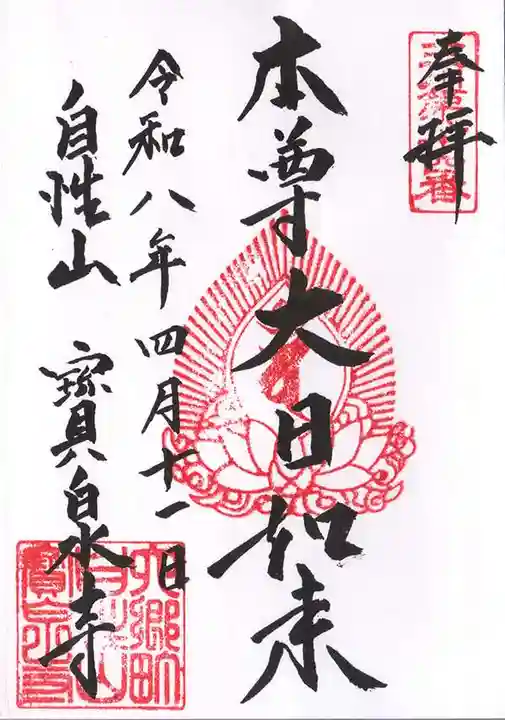 奉拝
本尊大日如来
令和八年四月十一日
自性山 寳泉寺